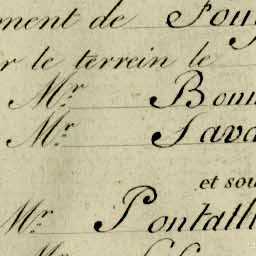 ment de Fouj
r le terrein le
Mr. Bonn
Mr. Sava
et sou
Mr. Pontall
Mr.